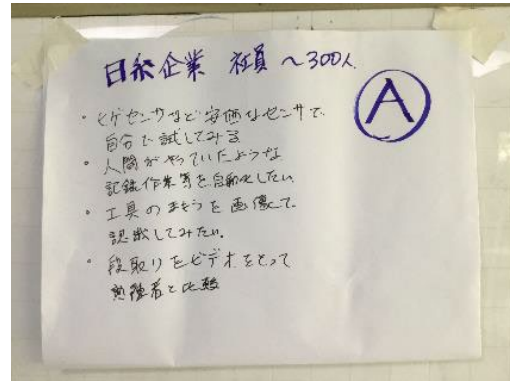 日系企業 社員 ~300人
A
・ヒゲセンサなど安価なセンサで
自分で試してみる
・人間がやっていたような
記録作業等を自動化したい
・工具のまもうを画像で
認識してみたい。
・段取りをビデオをとって
熟練者と比較